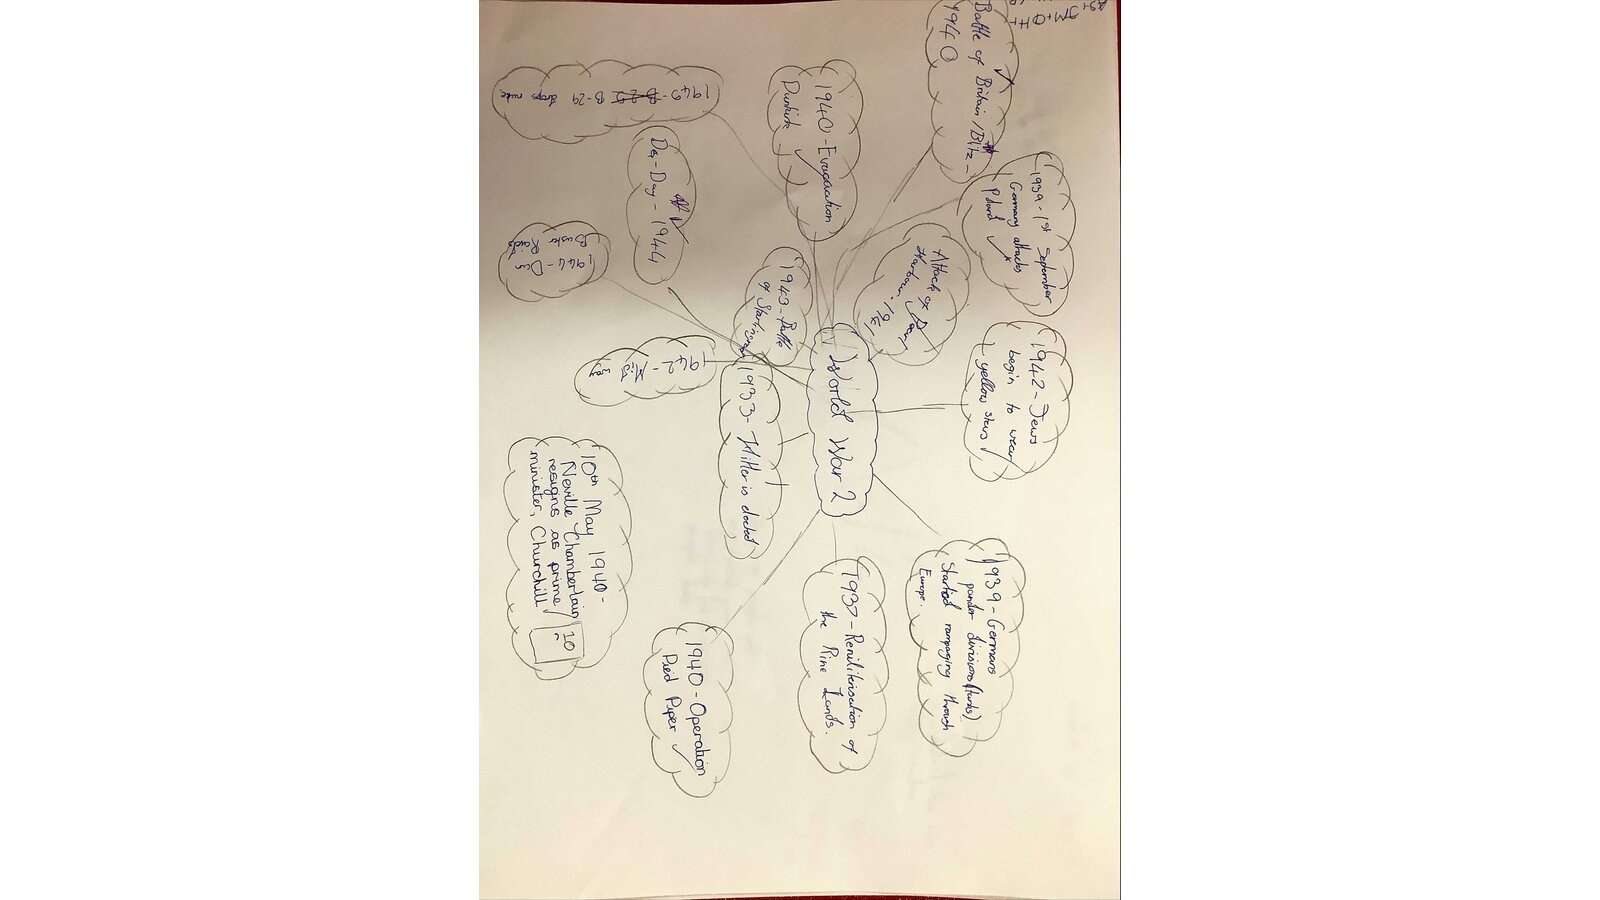 World War 2
Battle of Britain/Blitz -
1940
1939 - 1st September
Germany attacks
Poland
1942 - Jews
begin to wear
yellow stars
1939 - Germans
pander divisions (tanks)
Started rampaging through
Europe.
1940 - Evacuation
Dunkirk
Attack of
Harbour - 19
1937 - Remiliterisation of
the Rine Lands.
1943 - Battle
of
1933 - Hitler is elected
1940 - Operation
Pied Piper
1945 - B-29 B-29 drops nuke.
Day - 1944
1944 - Dam
Buster Raids
1942 - Mid
way
10th May 1940 -
Neville Chamberlain
resigns as prime
minister, Churchill
10